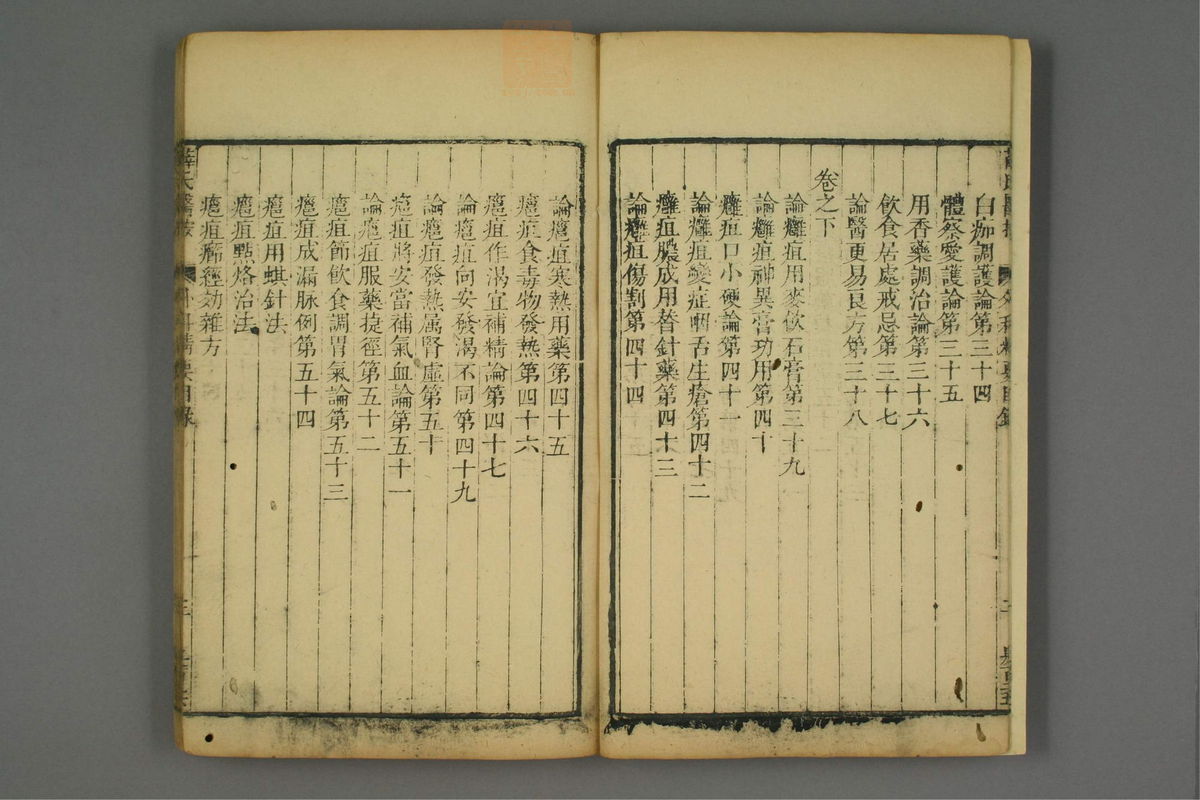 白痂調護論第三十四
體察愛護論第三十五
用香藥調治論第三十六
飲食居處戒忌第三十七
論醫更易良方第三十八
卷之下
論癰疽用麥飯石膏第三十九
論癰疽神異膏功用第四十
癰疽口小硬論第四十一
論癰疽變症咽舌生瘡第四十二
癰疽膿成用替針藥第四十三
論癰疽傷割第四十四
論癰疽寒熱用藥第四十五
癰疽食毒物發熱第四十六
癰疽作渴宜補精論第四十七
論癰疽向安發渴不同第四十九
論癰疽發熱属腎虛第五十
癰疽將安當補氣血論第五十一
論癰疽服藥捷徑第五十二
癰疽節飲食調胃氣論第五十三
癰疽成漏脉例第五十四
癰疽用蜞針法
癰疽㸃烙治法
癰疽癤徑効雜方
薛氏醫按
外科精要目錄
三